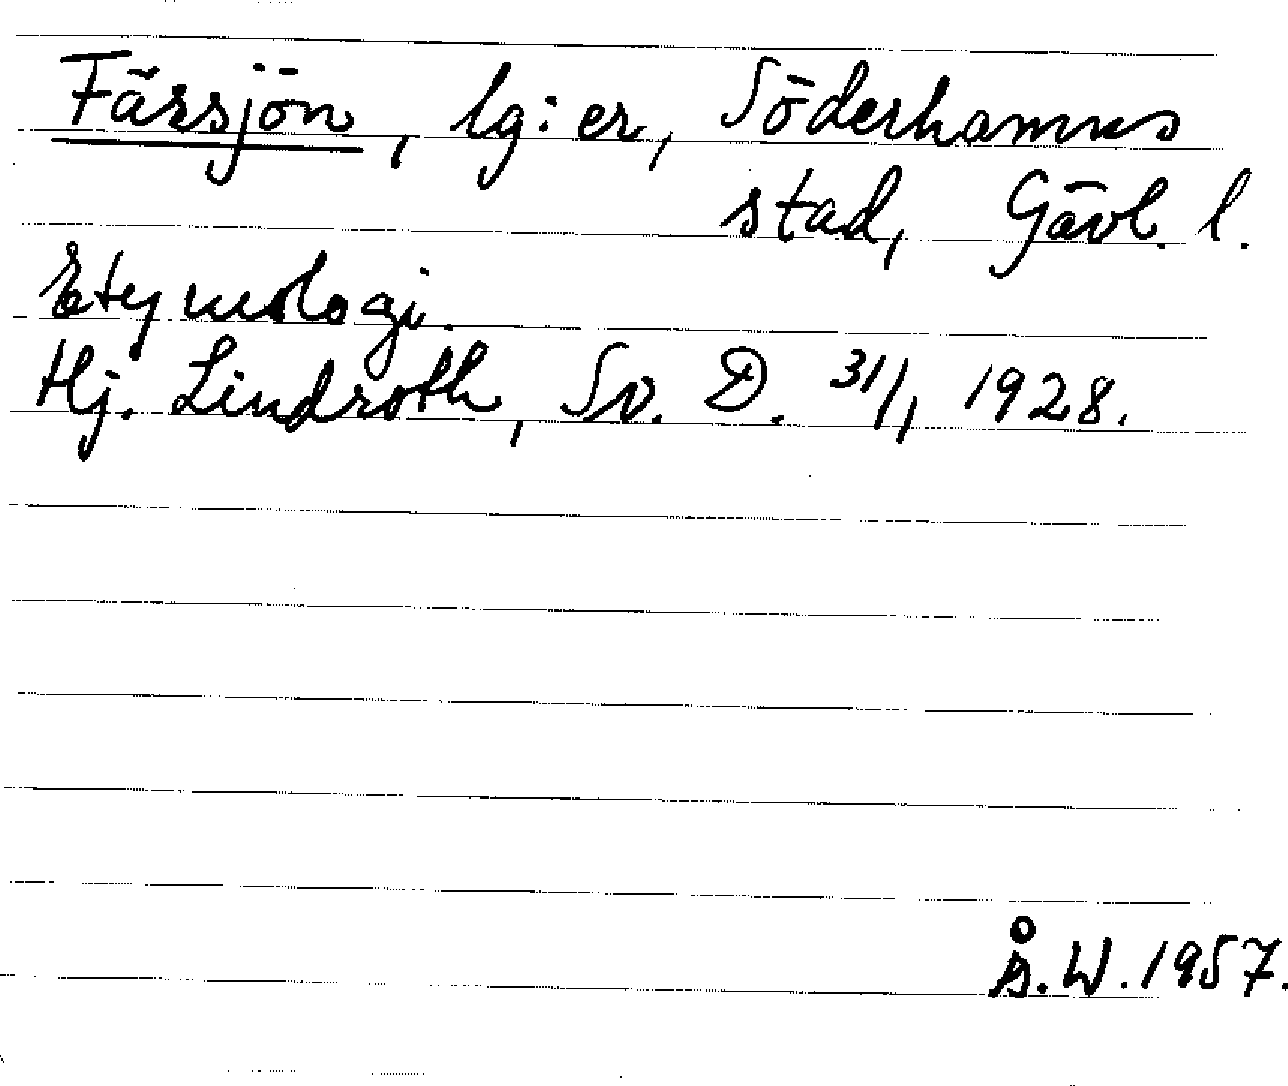 Färsjön, lg:er, Söderhamns
stad, Gävl. l.
Etymologi.
Hj. Lindroth, Sv. D. 31/1 1928.
Å.W. 1957.